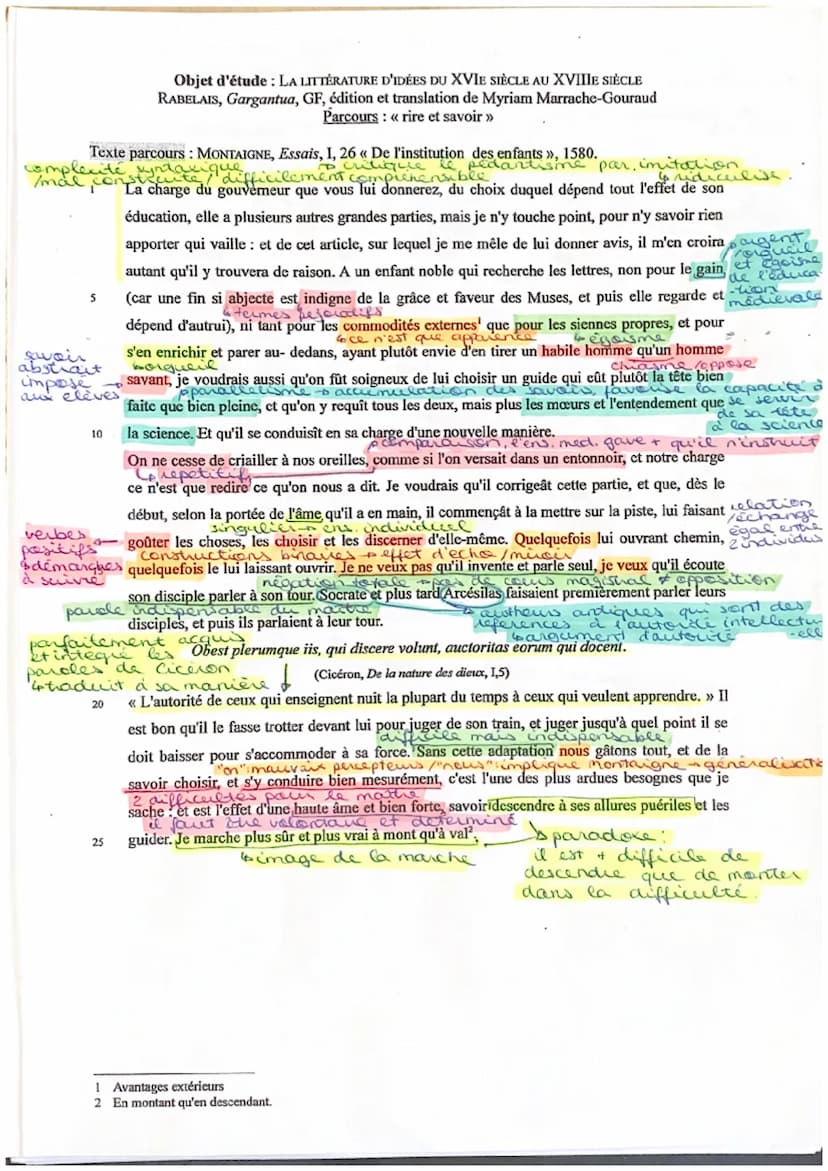 Objet d'étude : LA LITTÉRATURE D'IDÉES DU XVIE SIÈCLE AU XVIIIE SIÈCLE
RABELAIS, Gargantua, GF, édition et translation de Myriam Marrache-Gouraud
Parcours : « rire et savoir »
Texte parcours : MONTAIGNE, Essais, I, 26 « De l'institution des enfants », 1580.
complexité syntaxique → critique le pédantisme par imitation
/mal construite / difficilement compréhensible ↳ ridiculise
1 La charge du gouverneur que vous lui donnerez, du choix duquel dépend tout l'effet de son
éducation, elle a plusieurs autres grandes parties, mais je n'y touche point, pour n'y savoir rien
apporter qui vaille : et de cet article, sur lequel je me mêle de lui donner avis, il m'en croira
autant qu'il y trouvera de raison. A un enfant noble qui recherche les lettres, non pour le gain,
argent
orgueil
et égoïsme
de l'éduca
-tion
médiévale
5 (car une fin si abjecte est indigne de la grâce et faveur des Muses, et puis elle regarde et
↳ termes péjoratifs
dépend d'autrui), ni tant pour les commodités externes¹ que pour les siennes propres, et pour
↳ ce n'est que apparence ↳ égoïsme
s'en enrichir et parer au- dedans, ayant plutôt envie d'en tirer un habile homme qu'un homme
↳ orgueil chiasme/oppose
savoir
abstrait
imposé →
aux élèves
savant, je voudrais aussi qu'on fût soigneux de lui choisir un guide qui eût plutôt la tête bien
parallélisme → accumulation des savoirs, favorise la capacité à
faite que bien pleine, et qu'on y requît tous les deux, mais plus les mœurs et l'entendement que
se servir
de sa tête
à la science
10 la science. Et qu'il se conduisît en sa charge d'une nouvelle manière.
comparaison, l'ens. med. gave + qu'il n'instruit
On ne cesse de criailler à nos oreilles, comme si l'on versait dans un entonnoir, et notre charge
↳ répétitif
ce n'est que redire ce qu'on nous a dit. Je voudrais qu'il corrigeât cette partie, et que, dès le
début, selon la portée de l'âme qu'il a en main, il commençât à la mettre sur la piste, lui faisant
singulier → ens. individuel
relation
/échange
égal entre
2 individus
verbes
positifs
↳ démarches
à suivre
goûter les choses, les choisir et les discerner d'elle-même. Quelquefois lui ouvrant chemin,
constructions binaires → effet d'écho / miroir
15 quelquefois le lui laissant ouvrir. Je ne veux pas qu'il invente et parle seul, je veux qu'il écoute
négation totale → pas de cours magistral ≠ opposition
son disciple parler à son tour. Socrate et plus tard Arcésilas faisaient premièrement parler leurs
parole indispensable du maître
disciples, et puis ils parlaient à leur tour.
→ autheurs antiques qui sont des
références à l'autorité intellectu
-elle
↳ argument d'autorité
parfaitement acquis
et intégré les
paroles de Cicéron
↳ traduit à sa manière
Obest plerumque iis, qui discere volunt, auctoritas eorum qui docent.
(Cicéron, De la nature des dieux, I,5)
20 « L'autorité de ceux qui enseignent nuit la plupart du temps à ceux qui veulent apprendre. » Il
est bon qu'il le fasse trotter devant lui pour juger de son train, et juger jusqu'à quel point il se
difficile mais indispensable
doit baisser pour s'accommoder à sa force. Sans cette adaptation nous gâtons tout, et de la
"on": mauvais percepteurs / "nous": implique Montaigne → généralisat
savoir choisir, et s'y conduire bien mesurément, c'est l'une des plus ardues besognes que je
2 difficultés pour le maître
sache : et est l'effet d'une haute âme et bien forte, savoir descendre à ses allures puériles et les
il faut être volontaire et déterminé
25 guider. Je marche plus sûr et plus vrai à mont qu'à val².
↳ image de la marche
↳ paradoxe :
il est + difficile de
descendre que de monter
dans la difficulté.
1 Avantages extérieurs
2 En montant qu'en descendant.